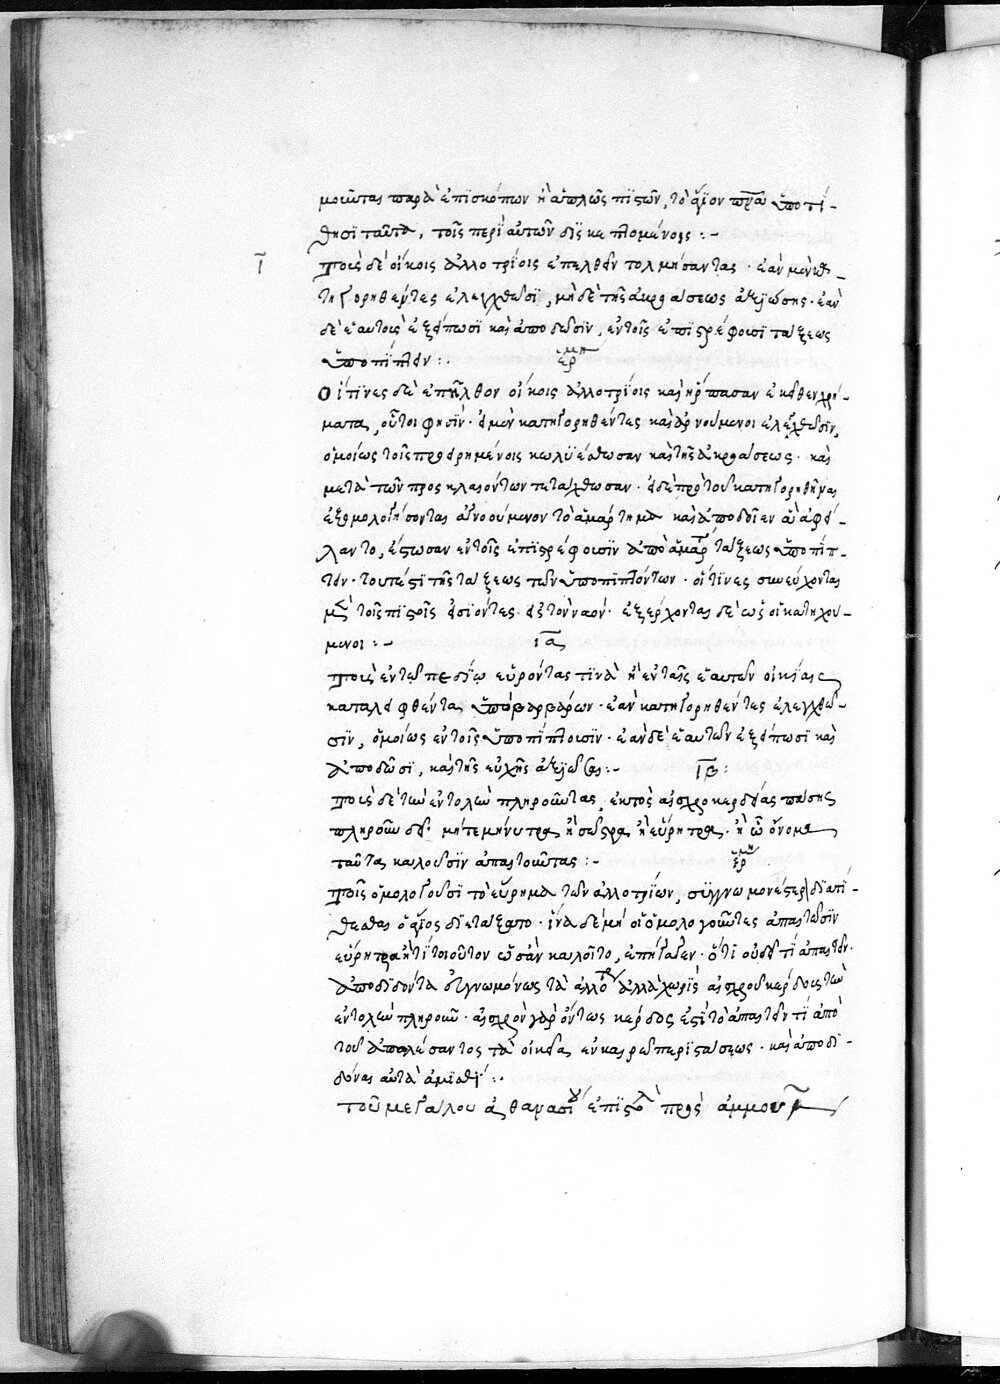 μοιῶντας παρὰ ἐπισκόπων ἢ ἁπλῶς πιστῶν, τὸ ἅγιον πνᾶ ὑποτί-
θησι ταῦτα, τοῖς περὶ αὐτῶν δις κε πλομένοις :-
ῑ Τοὺς δὲ οἴκοις ἀλλοτρίοις ἐπελθεῖν τολμήσαντας · ἐὰν μὲν κα-
τηγορηθέντες ἐλεγχθῶσι, μὴ δὲ τῆς ἀκροάσεως ἀξιῶσης · ἐὰν
δὲ ἑαυτοὺς ἐξείπωσι καὶ ἀποδῶσιν, ἐν τοῖς ἐπιστρέφουσι τάξεως
ὑποπίπτειν :· ἑρμη
Οἵτινες δὲ ἐπῆλθον οἴκοις ἀλλοτρίοις καὶ ἥρπασαν ἐκεῖθεν χρή-
ματα, οὗτοι φησὶν · εἰ μὲν κατηγορηθέντες καὶ ἀρνούμενοι ἐλεγχθῶσιν,
ὁμοίως τοῖς προειρημένοις κωλυέσθωσαν καὶ τῆς ἀκροάσεως · καὶ
μετὰ τῶν προσκλαιόντων τετάχθωσαν · εἰ δὲ πρὸ τοῦ κατηγορηθῆναι
ἐξομολογήσονται ἀγνοούμενον τὸ ἁμάρτημα καὶ ἀποδοῖεν ἃ ἀφεί-
λαντο, ἔστωσαν ἐν τοῖς ἐπιστρέφουσιν ἀπὸ ἁμαρτ τάξεως ὑποπίπ-
τειν · τουτέστι τῆς τάξεως τῶν ὑποπιπτόντων · οἵτινες συνεύχονται
μετὰ τοῖς πιστοῖς εἰσιόντες εἰς τὸν ναόν · ἐξέρχονται δὲ ὡς οἱ κατηχού-
μενοι :- ῑᾱ
Τοὺς ἐν τῷ πεδίῳ εὑρόντας τινὰ ἢ ἐν ταῖς ἑαυτῶν οἰκίαις
καταλειφθέντα ὑπὸ βαρβάρων · ἐὰν κατηγορηθέντες ἐλεγχθῶ-
σιν, ὁμοίως ἐν τοῖς ὑποπίπτουσιν · ἐὰν δὲ ἑαυτῶν ἐξείπωσι καὶ
ἀποδῶσι, καὶ τῆς εὐχῆς ἀξιῶσαι :- ῑβ̄ :
Τοὺς δὲ τὴν ἐντολὴν πληροῦντας, ἐκτὸς αἰσχροκερδείας πάσης
πληροῦν δεῖ · μήτε μήνυτρα ἢ σῶστρα ἢ εὕρητρα · ἢ ᾧ ὄνομα
ταῦτα καλοῦσιν ἀπαιτοῦντας :- ἑρμη
Τοῖς ὁμολογοῦσι τὸ εὕρημα τῶν ἀλλοτρίων, συγγνωμονέστερ διατί-
θεσθαι ὁ ἅγιος διετάξατο · ἵνα δὲ μὴ οἱ ὁμολογοῦντες ἀπαιτῶσιν
εὕρητρα ἤ τι τοιοῦτον ὡς ἂν καλοῖτο, ἐπήγαγεν · ὅτι οὐδέ τι ἀπαιτεῖν ·
ἀποδιδόντα εὐγνωμόνως τὰ ἀλλότρ ἀλλὰ χωρὶς αἰσχροῦ κέρδους τὴν
ἐντολὴν πληροῦν · αἰσχρὸν γὰρ ὄντως κέρδος ἐστὶ τὸ ἀπαιτεῖν τι ἀπὸ
τοῦ ἀπολέσαντος τὰ οἰκεῖα ἐν καιρῷ περιστάσεως · καὶ ἀποδι-
δόναι αὐτὰ ἀμισθί :·
τοῦ μεγάλου ἀθανασίου ἐπιστολὴ πρὸς ἀμμοῦν